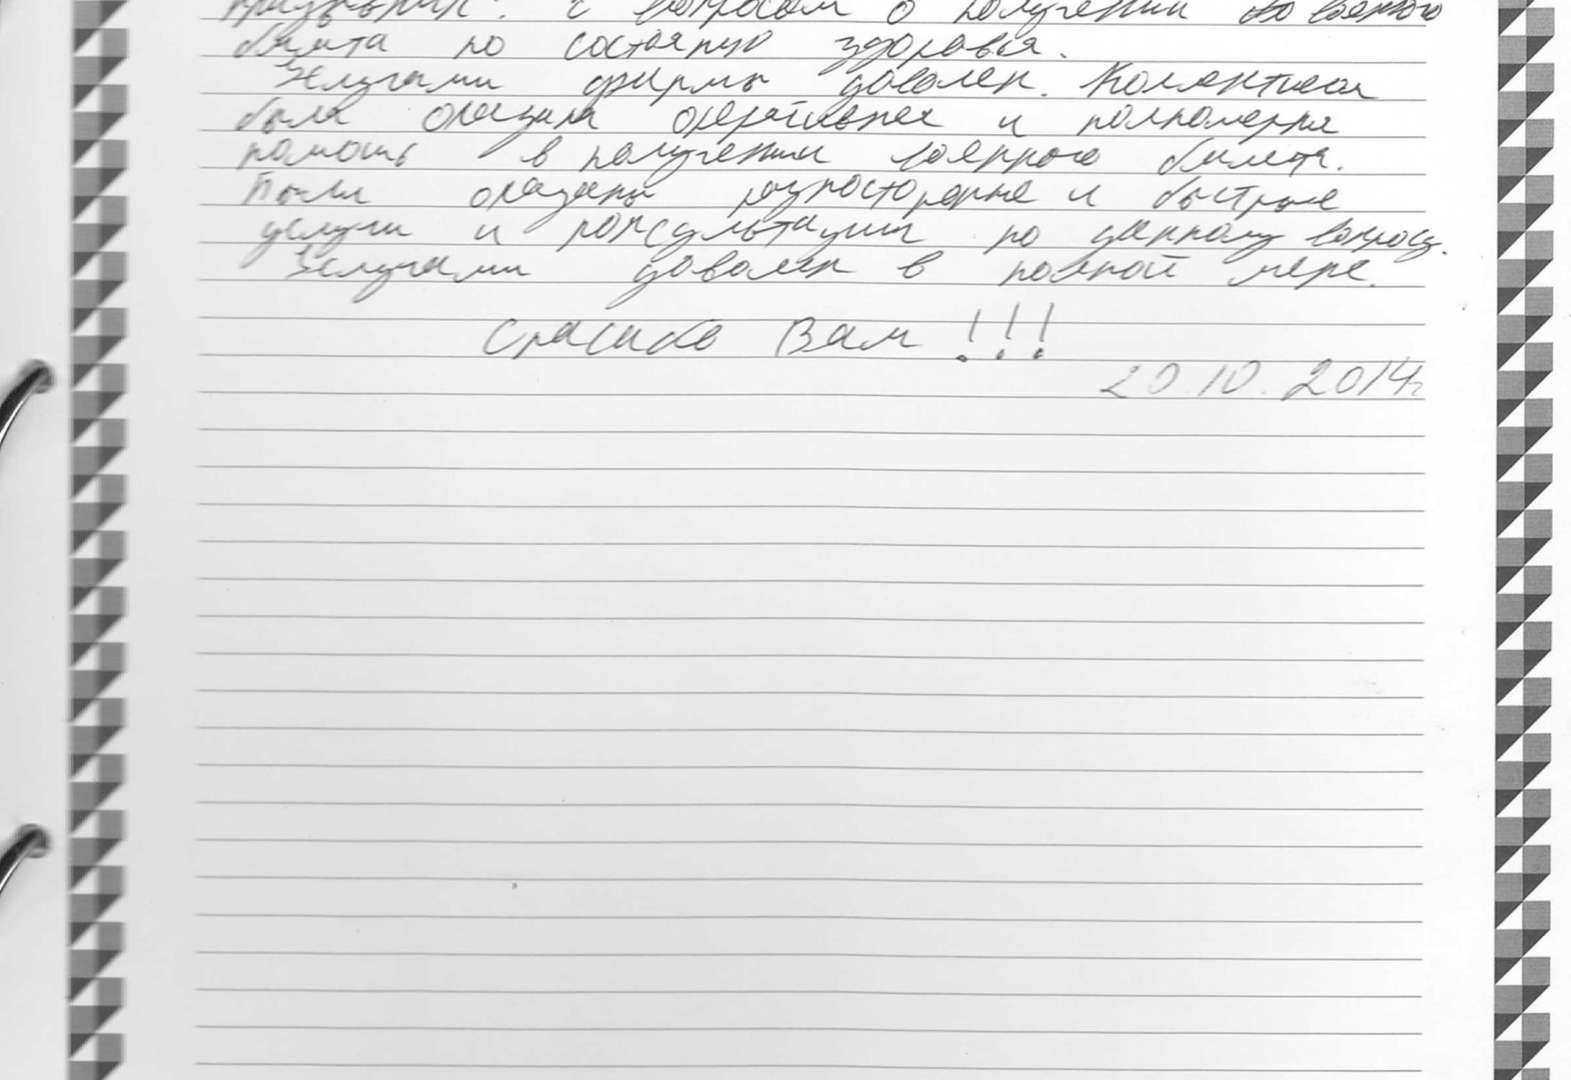 призывник". с вопросом о получении военного
билета по состоянию здоровья.
Услугами фирмы доволен. Коллективом
была оказана оперативная и полномерная
помощь в получении военного билета.
Были оказаны разносторонние и быстрые
услуги и консультации по данному вопросу.
Услугами доволен в полной мере.
Спасибо Вам !!!
20.10.2014г